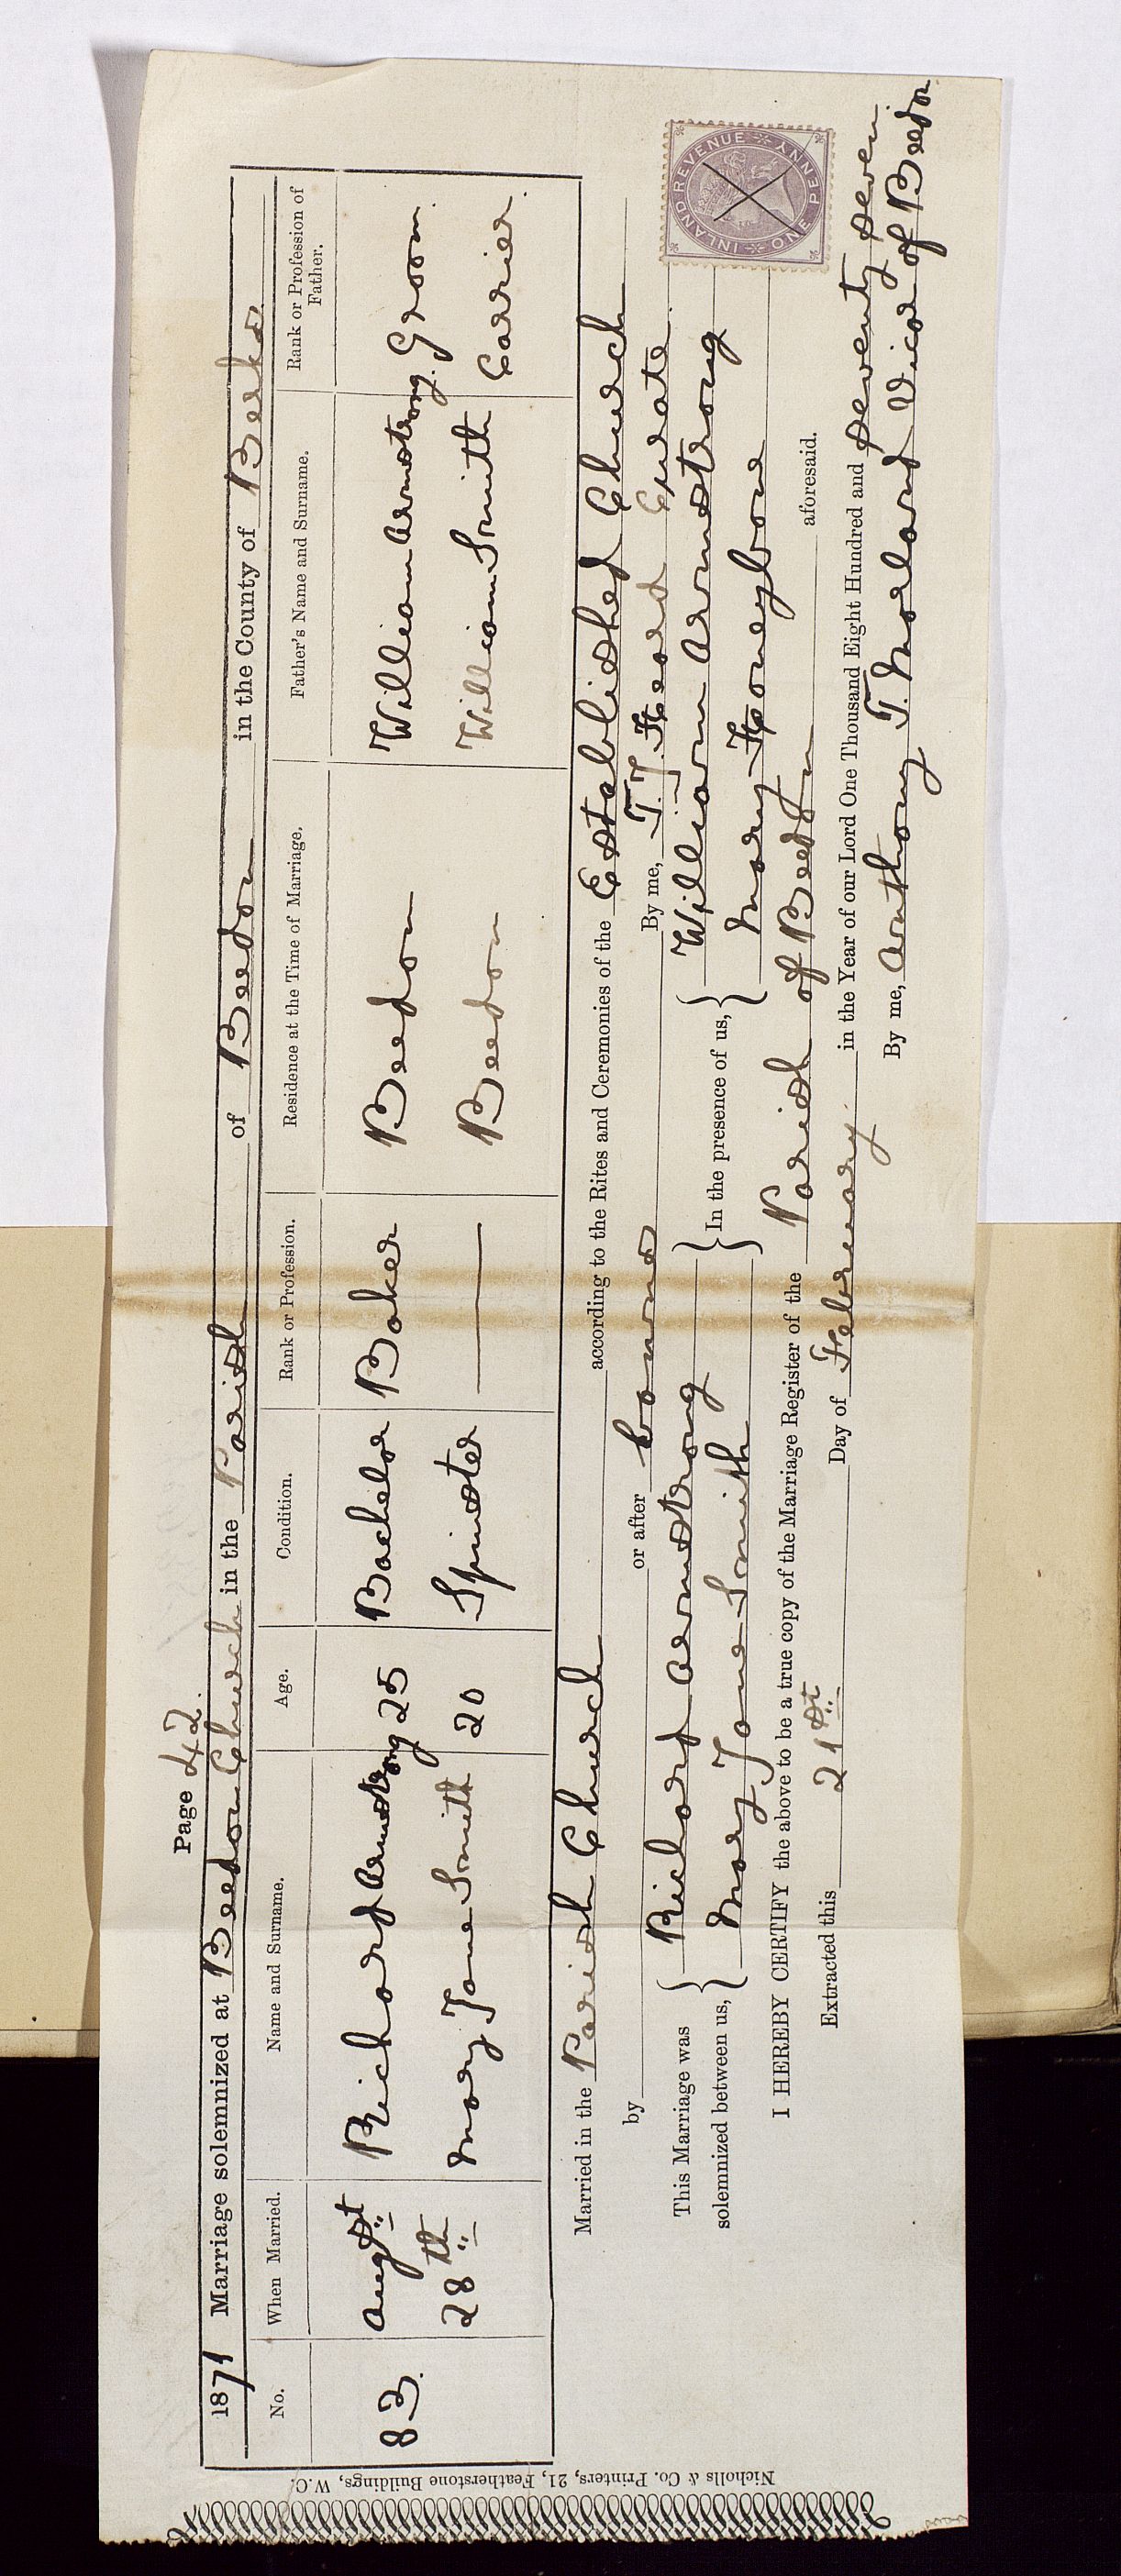 Page 42.
1871 Marriage solemnized at Beedon Church in the Parish of Beedon in the County of Berks.
No. When Married. Name and Surname. Age. Condition. Rank or Profession. Residence at the Time of Marriage. Father's Name and Surname. Rank or Profession of Father.
83. Augst Richard Armstrong 25 Bachelor Baker Beedon William Armstrong. Groom.
28th Mary Jane Smith 20 Spinster Beedon William Smith Carrier.
Married in the Parish Church according to the Rites and Ceremonies of the Established Church
by or after banns By me, T. J. Heard Curate.
This Marriage was solemnized between us, { Richard Armstrong } In the presence of us, { William Armstrong
Mary Jane Smith Mary Honeybone
I HEREBY CERTIFY the above to be a true copy of the Marriage Register of the Parish of Beedon aforesaid.
Extracted this 21st Day of February in the Year of our Lord One Thousand Eight Hundred and Seventy Seven.
By me, Anthony T. Morland Vicar of Beedon
INLAND REVENUE ONE PENNY
Nicholls & Co. Printers, 21, Featherstone Buildings, W.C.